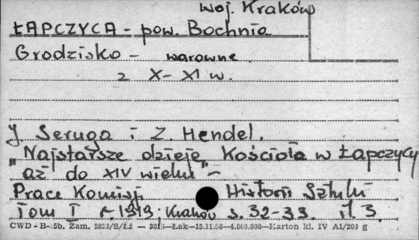 woj. Kraków
ŁAPCZYCA - pow. Bochnia
Grodzisko - warowne
z X-XI w.
J. Seruga i Z. Hendel.
"Najstarsze dzieje Kościoła w Łapczycy
aż do XIV wieku" -
Prace Komisji Historii Sztuki
Tom I r. 1919; Kraków s. 32-33. il. 3.
CWD - B- 5b. Zam. 5823/S/Łż - Łak-15.11.56-4.000.000-Karton kl. IV A1/200 g